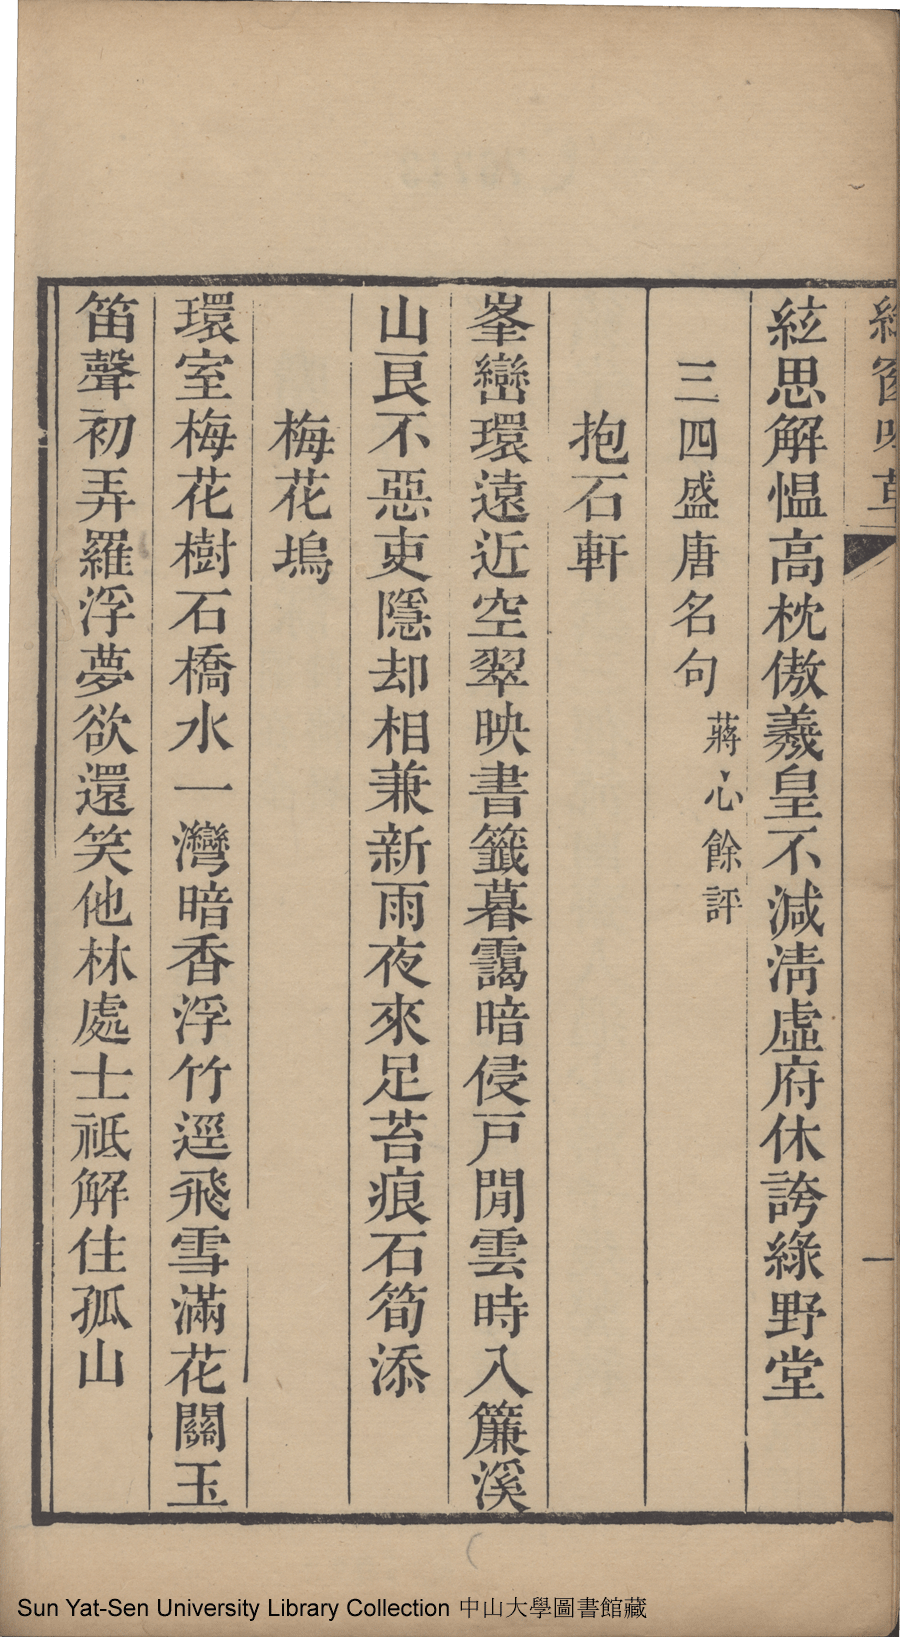 綠窗吟草
一
絃思解慍高枕傲羲皇不減淸虛府休誇綠野堂
三四盛唐名句
蔣心餘評
抱石軒
峯巒環遠近空翠映書籤暮靄暗侵戸閒雲時入簾溪
山良不惡吏隱却相兼新雨夜來足苔痕石筍添
梅花塢
環室梅花樹石橋水一灣暗香浮竹逕飛雪滿花關玉
笛聲初弄羅浮夢欲還笑他林處士祗解住孤山
Sun Yat-Sen University Library Collection 中山大學圖書館藏